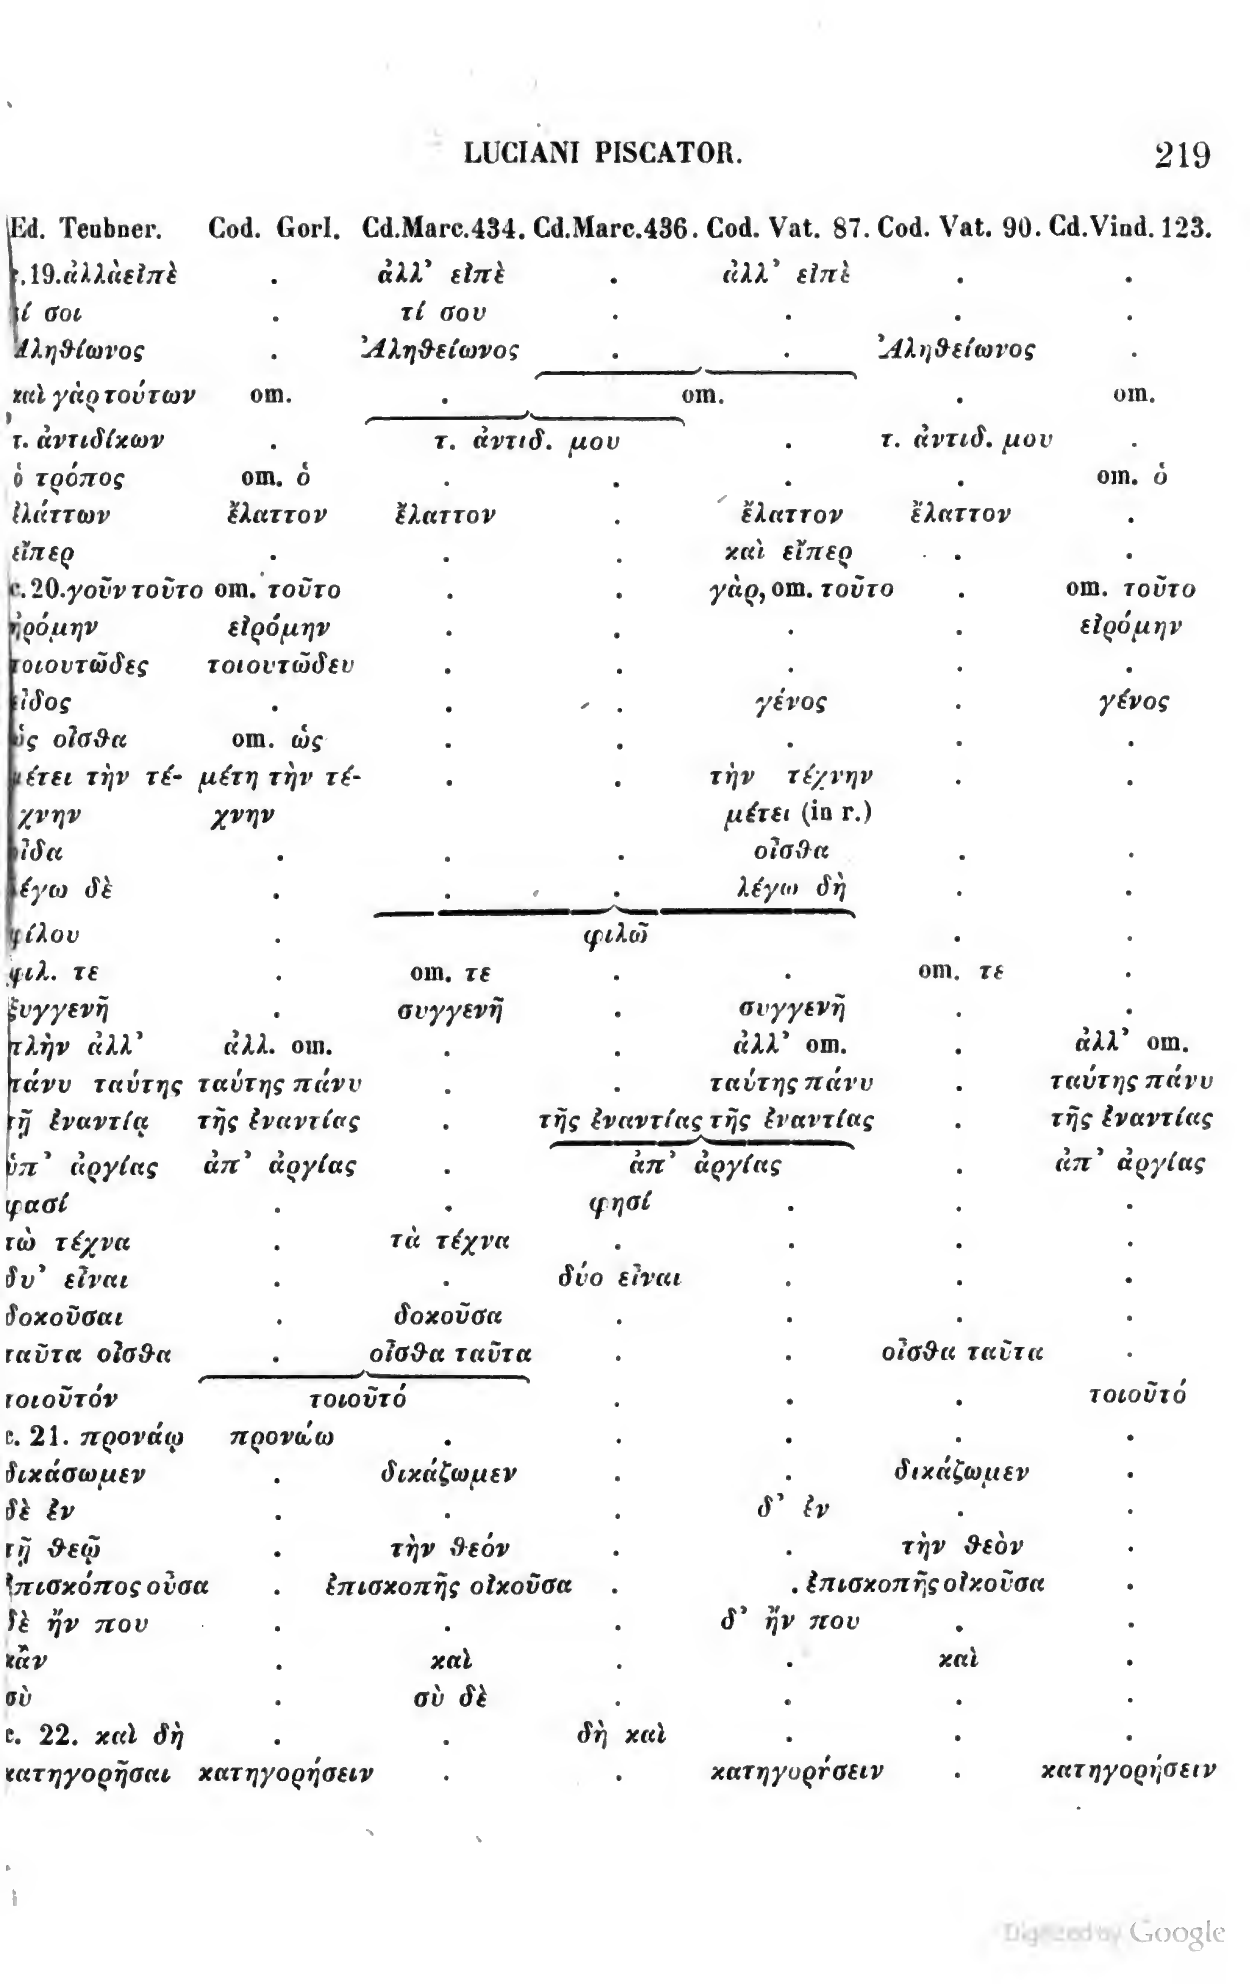 LUCIANI PISCATOR. 219
Ed. Teubner. Cod. Gorl. Cd.Marc.434. Cd.Marc.436. Cod. Vat. 87. Cod. Vat. 90. Cd.Vind. 123.
c.19.ἀλλὰεἰπὲ . ἀλλ’ εἰπὲ . ἀλλ’ εἰπὲ . .
τί σοι . τί σου . . . .
Ἀληθίωνος . Ἀληθείωνος . . Ἀληθείωνος .
καὶ γὰρ τούτων om. . om. . om.
τ. ἀντιδίκων . τ. ἀντιδ. μου . τ. ἀντιδ. μου .
ὁ τρόπος om. ὁ . . . . om. ὁ
ἐλάττων ἔλαττον ἔλαττον . ἔλαττον ἔλαττον .
εἴπερ . . . καὶ εἴπερ . .
c.20.γοῦν τοῦτο om. τοῦτο . . γὰρ, om. τοῦτο . om. τοῦτο
ἠρόμην εἰρόμην . . . . εἰρόμην
τοιουτῶδες τοιουτῶδευ . . . . .
εἶδος . . . γένος . γένος
ὡς οἶσθα om. ὡς . . . . .
μέτει τὴν τέ- μέτη τὴν τέ- . . τὴν τέχνην . .
χνην χνην μέτει (in r.)
οἶδα . . . οἶσθα . .
λέγω δὲ . . . λέγω δὴ . .
φίλου . φιλῶ . .
φιλ. τε . om. τε . . om. τε .
ξυγγενῆ . συγγενῆ . συγγενῆ . .
πλὴν ἀλλ’ ἀλλ. om. . . ἀλλ’ om. . ἀλλ’ om.
πάνυ ταύτης ταύτης πάνυ . . ταύτης πάνυ . ταύτης πάνυ
τῇ ἐναντίᾳ τῆς ἐναντίας . τῆς ἐναντίας τῆς ἐναντίας . τῆς ἐναντίας
ὑπ’ ἀργίας ἀπ’ ἀργίας . ἀπ’ ἀργίας . ἀπ’ ἀργίας
φασί . . φησί . . .
τὼ τέχνα . τὰ τέχνα . . . .
δυ’ εἶναι . . δύο εἶναι . . .
δοκοῦσαι . δοκοῦσα . . . .
ταῦτα οἶσθα . οἶσθα ταῦτα . . οἶσθα ταῦτα .
τοιοῦτόν τοιοῦτό . . . τοιοῦτό
c. 21. προνάῳ προνώω . . . . .
δικάσωμεν . δικάζωμεν . . δικάζωμεν .
δὲ ἐν . . . δ’ ἐν . .
τῇ θεῷ . τὴν θεόν . . τὴν θεὸν .
ἐπισκόπος οὖσα . ἐπισκοπῆς οἰκοῦσα . . ἐπισκοπῆς οἰκοῦσα .
δὲ ἤν που . . . δ’ ἤν που . .
κἂν . καὶ . . καὶ .
σὺ . σὺ δὲ . . . .
c. 22. καὶ δὴ . . δὴ καὶ . . .
κατηγορῆσαι κατηγορήσειν . . κατηγορήσειν . κατηγορήσειν
Digitized by Google